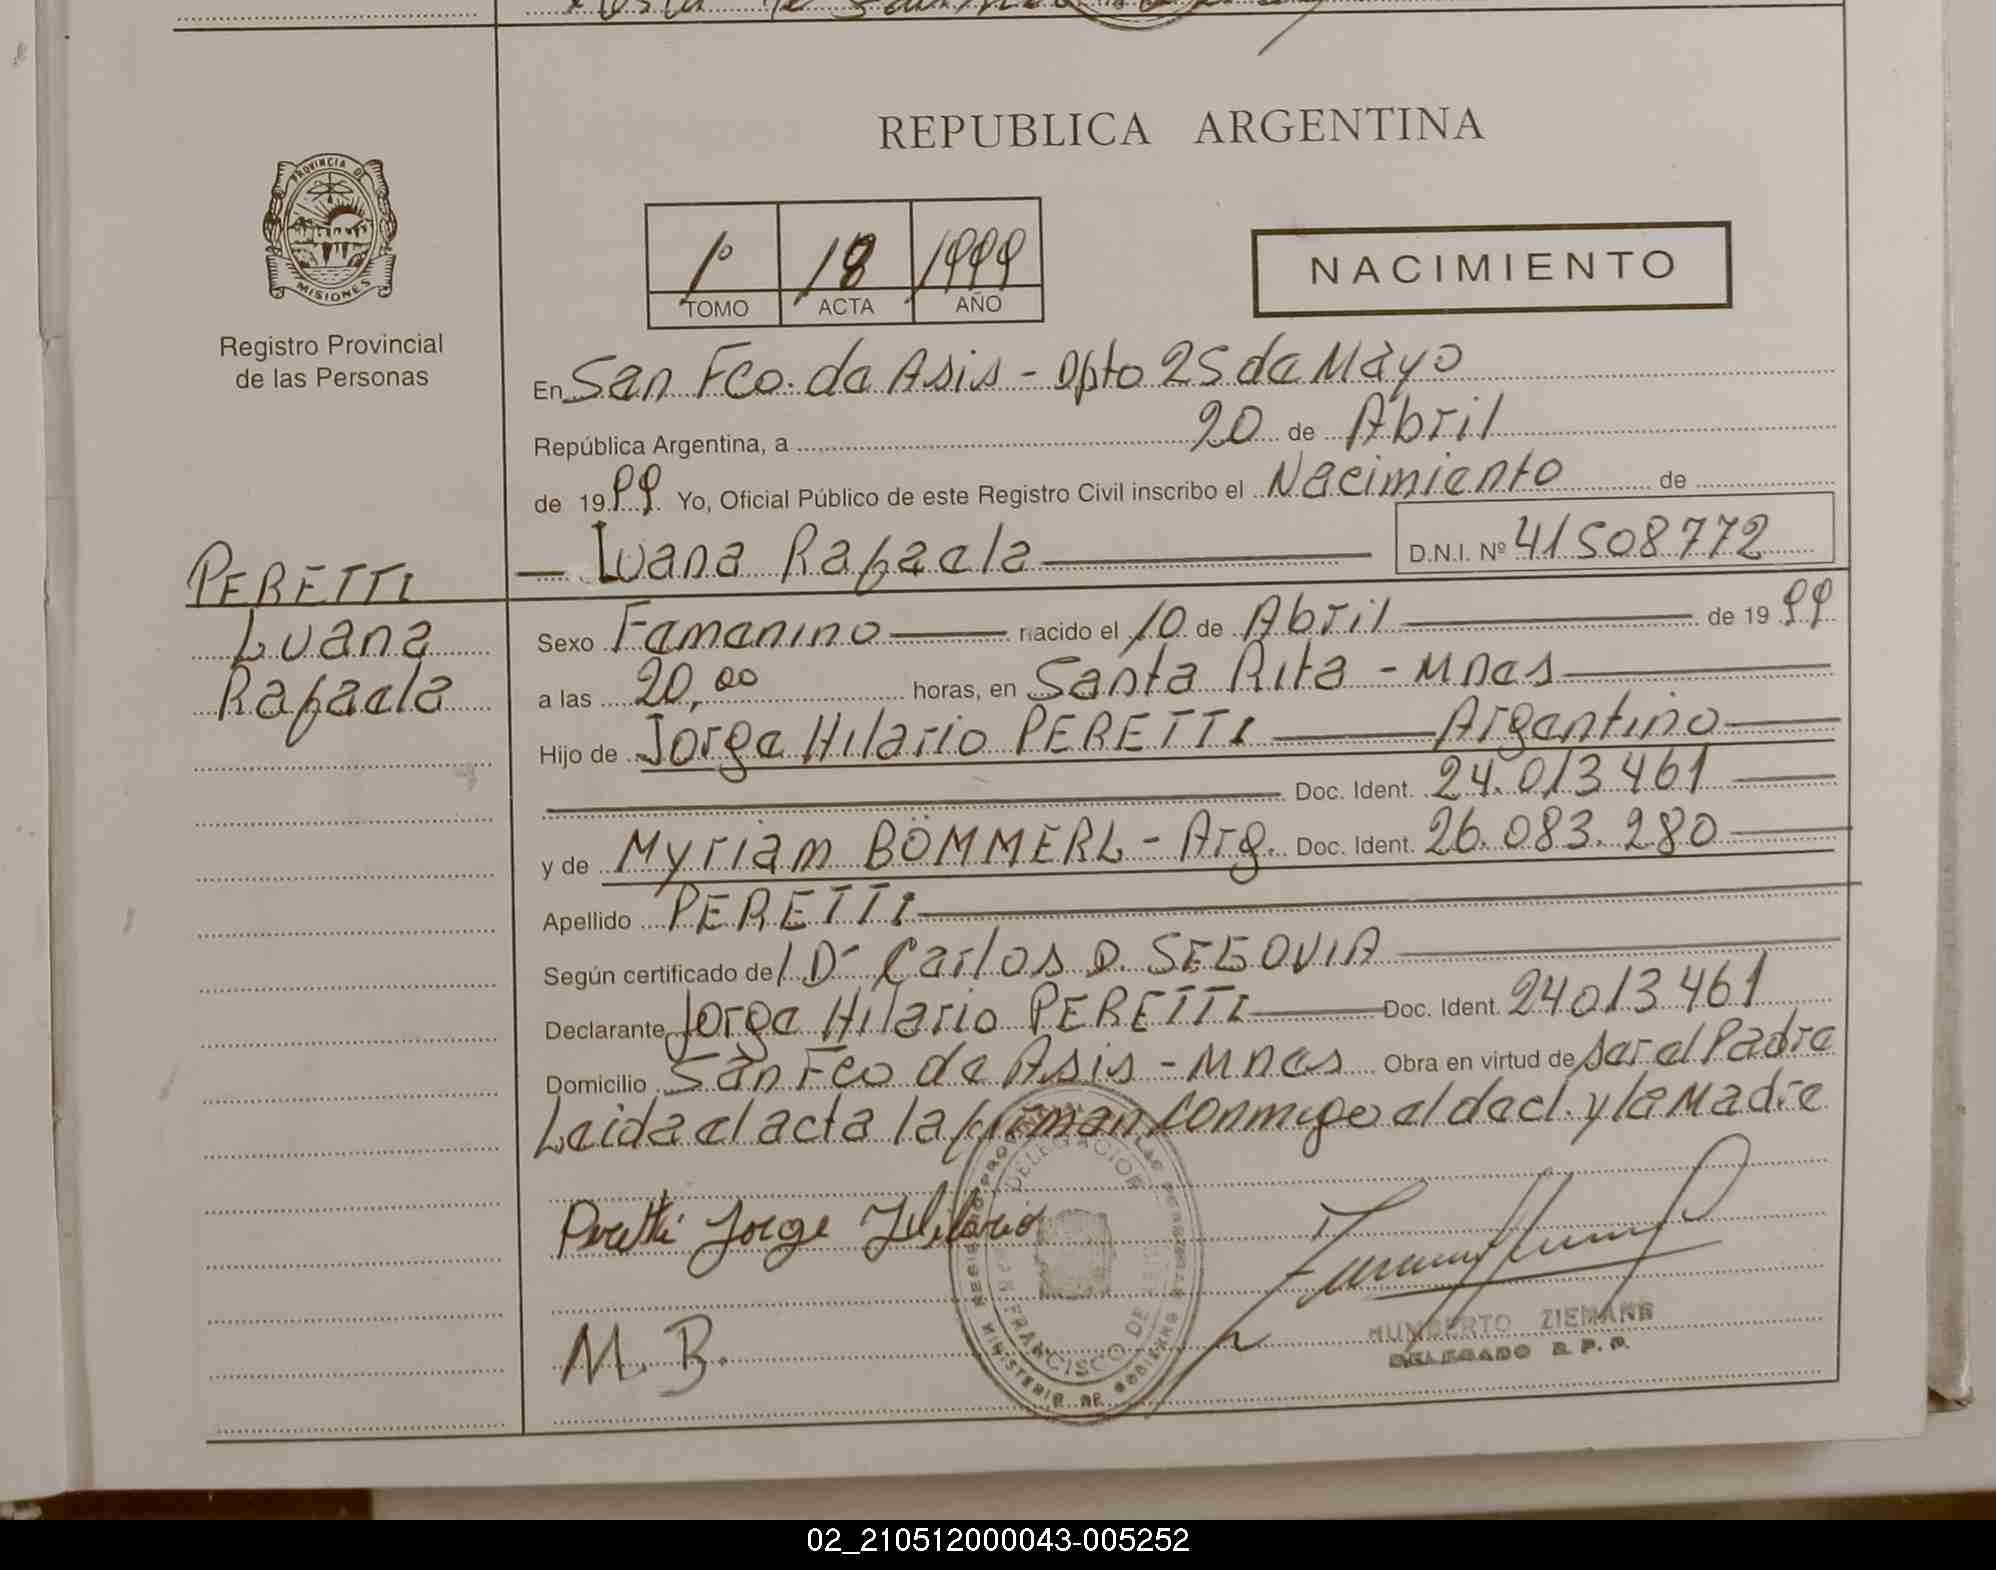 REPUBLICA ARGENTINA
PROVINCIA DE MISIONES
Registro Provincial
de las Personas
1º 18 1999
TOMO ACTA AÑO
NACIMIENTO
En San Fco. de Asis - Dpto 25 de Mayo
República Argentina, a 20 de Abril
de 1999 Yo, Oficial Público de este Registro Civil inscribo el Nacimiento de
Luana Rafaela D.N.I. Nº 41508772
PERETTI
Luana
Rafaela
Sexo Femenino nacido el 10 de Abril de 1999
a las 20,00 horas, en Santa Rita - Mnes
Hijo de Jorge Hilario PERETTI Argentino
Doc. Ident. 24.013461
y de Myriam BÖMMERL - Arg. Doc. Ident. 26.083.280
Apellido PERETTI
Según certificado del Dr Carlos D. SEGOVIA
Declarante Jorge Hilario PERETTI Doc. Ident. 24013461
Domicilio San Fco de Asis - Mnes Obra en virtud de ser el Padre
Leida el acta la firman conmigo el decl. y la Madre
Peretti Jorge Hilario
M. B.
DELEGACION
SAN FRANCISCO DE ASIS
MINISTERIO DE GOBIERNO
HUMBERTO ZIEMANN
DELEGADO R.P.P.
02_210512000043-005252